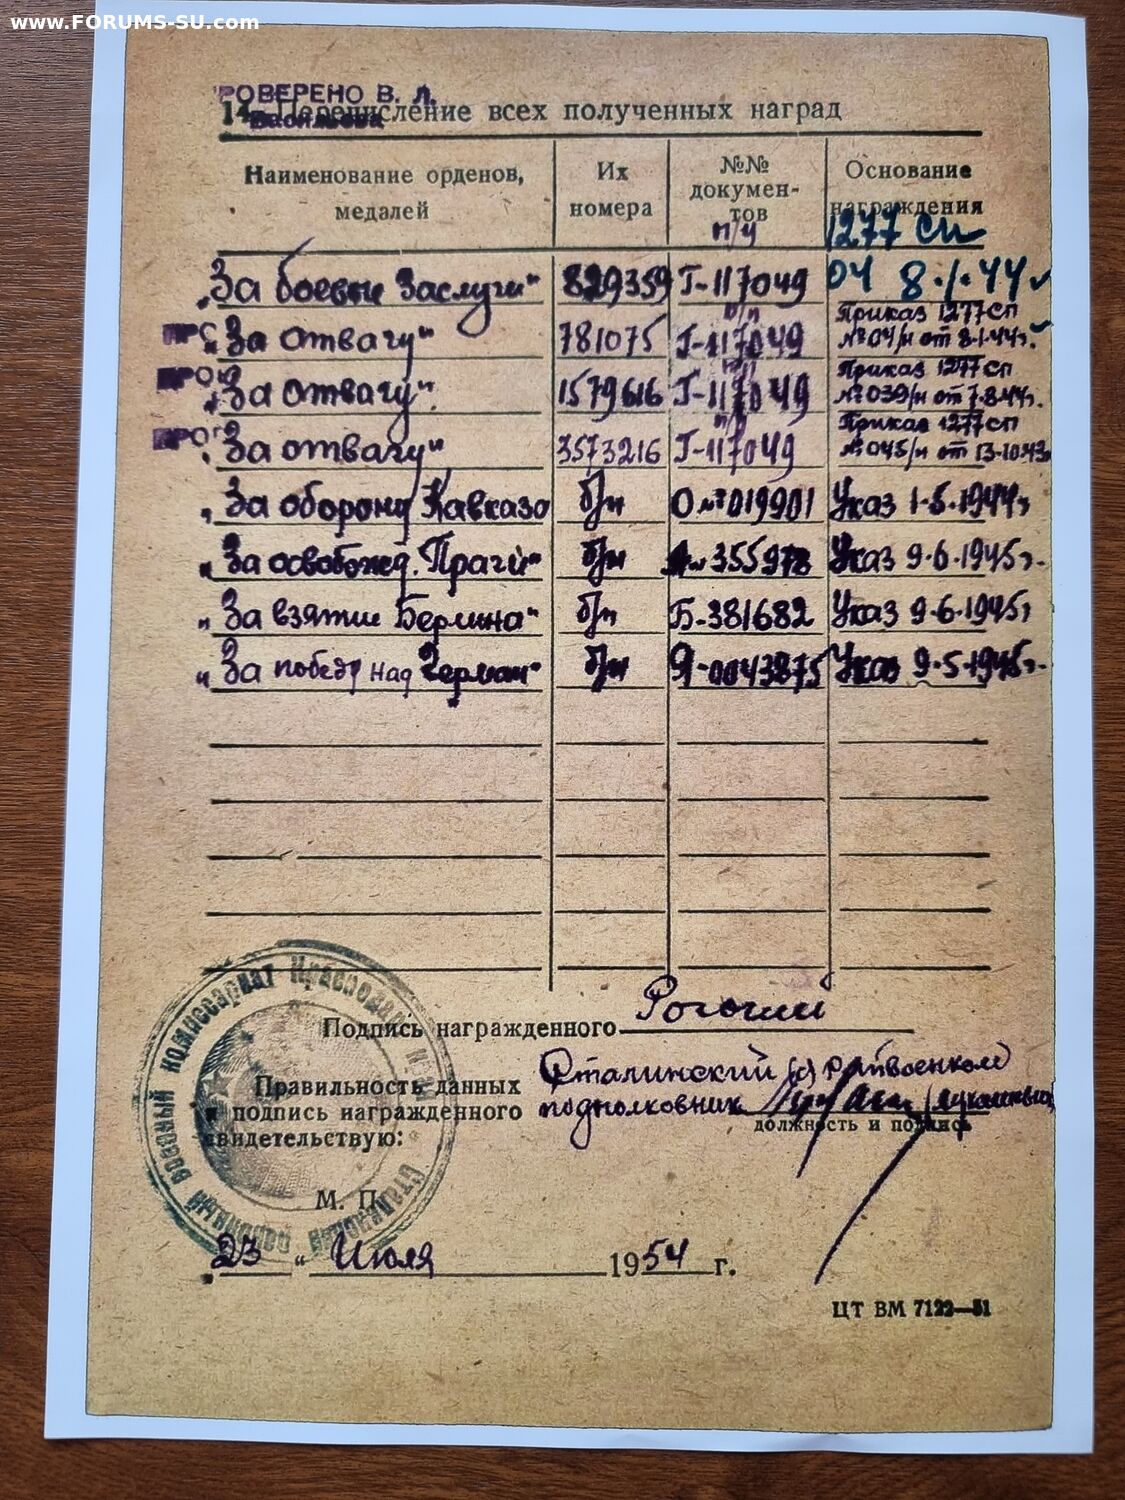 www.FORUMS-SU.com
РОВЕРЕНО В. Л.
14. Перечисление всех полученных наград
Наименование орденов, медалей
Их номера
№№ документов
Основание награждения
п/у 1277 СП
"За боевые Заслуги" 829359 Г-117049 04 8.1.44
"За отвагу" 781075 Г-117049 Приказ 1277 СП №04/н от 8.1.44г.
"За отвагу" 1579616 Г-117049 Приказ 1277 СП №039/н от 7.8.44г.
"За отвагу" 3573216 Г-117049 Приказ 1277 СП №045/н от 13.10.43
"За оборону Кавказа б/н 019901 Указ 1.5.1944г
"За освобожд. Праги" б/н 355978 Указ 9.6.1945г.
"За взятие Берлина" б/н Б-381682 Указ 9.6.1945г
"За победу над Герман" б/н Я-0043875 Указ 9.5.1945г.
Подпись награжденного
Правильность данных Сталинский райвоенком
и подпись награжденного подполковник
свидетельствую:
должность и подпись
М. П.
"23" Июля 1954 г.
ЦТ ВМ 7122—51
Районный военный комиссариат Краснодар